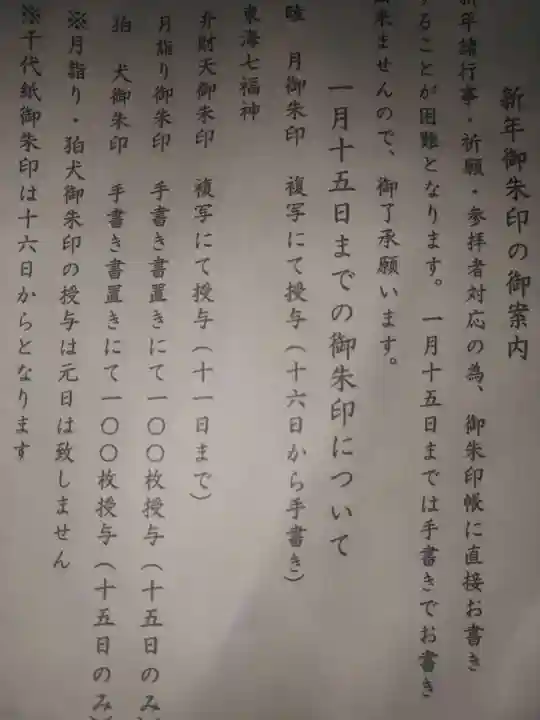 新年御朱印の御案内
新年諸行事・祈願・参拝者対応の為、御朱印帳に直接お書き
することが困難となります。一月十五日までは手書きでお書き
出来ませんので、御了承願います。
一月十五日までの御朱印について
睦　月御朱印　複写にて授与（十六日から手書き）
東海七福神
弁財天御朱印　複写にて授与（十一日まで）
月詣り御朱印　手書き書置きにて一〇〇枚授与（十五日のみ）
狛　犬御朱印　手書き書置きにて一〇〇枚授与（十五日のみ）
※月詣り・狛犬御朱印の授与は元日は致しません
※千代紙御朱印は十六日からとなります